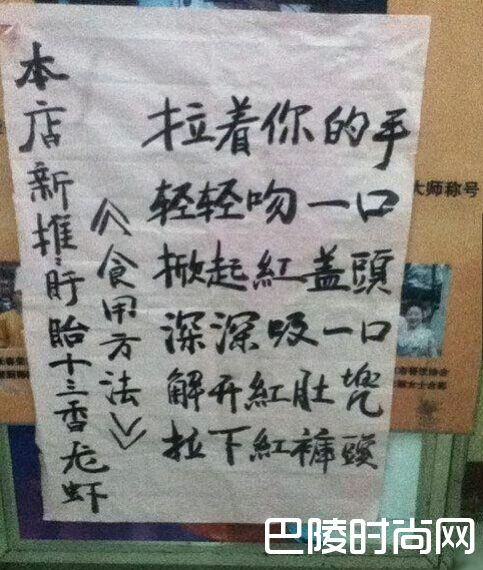 本店新推:盱眙十三香龙虾
《食用方法》
拉着你的手
轻轻吻一口
掀起紅盖頭
深深吸一口
解开紅肚兜
拉下紅褲頭
大师称号
巴陵时尚网